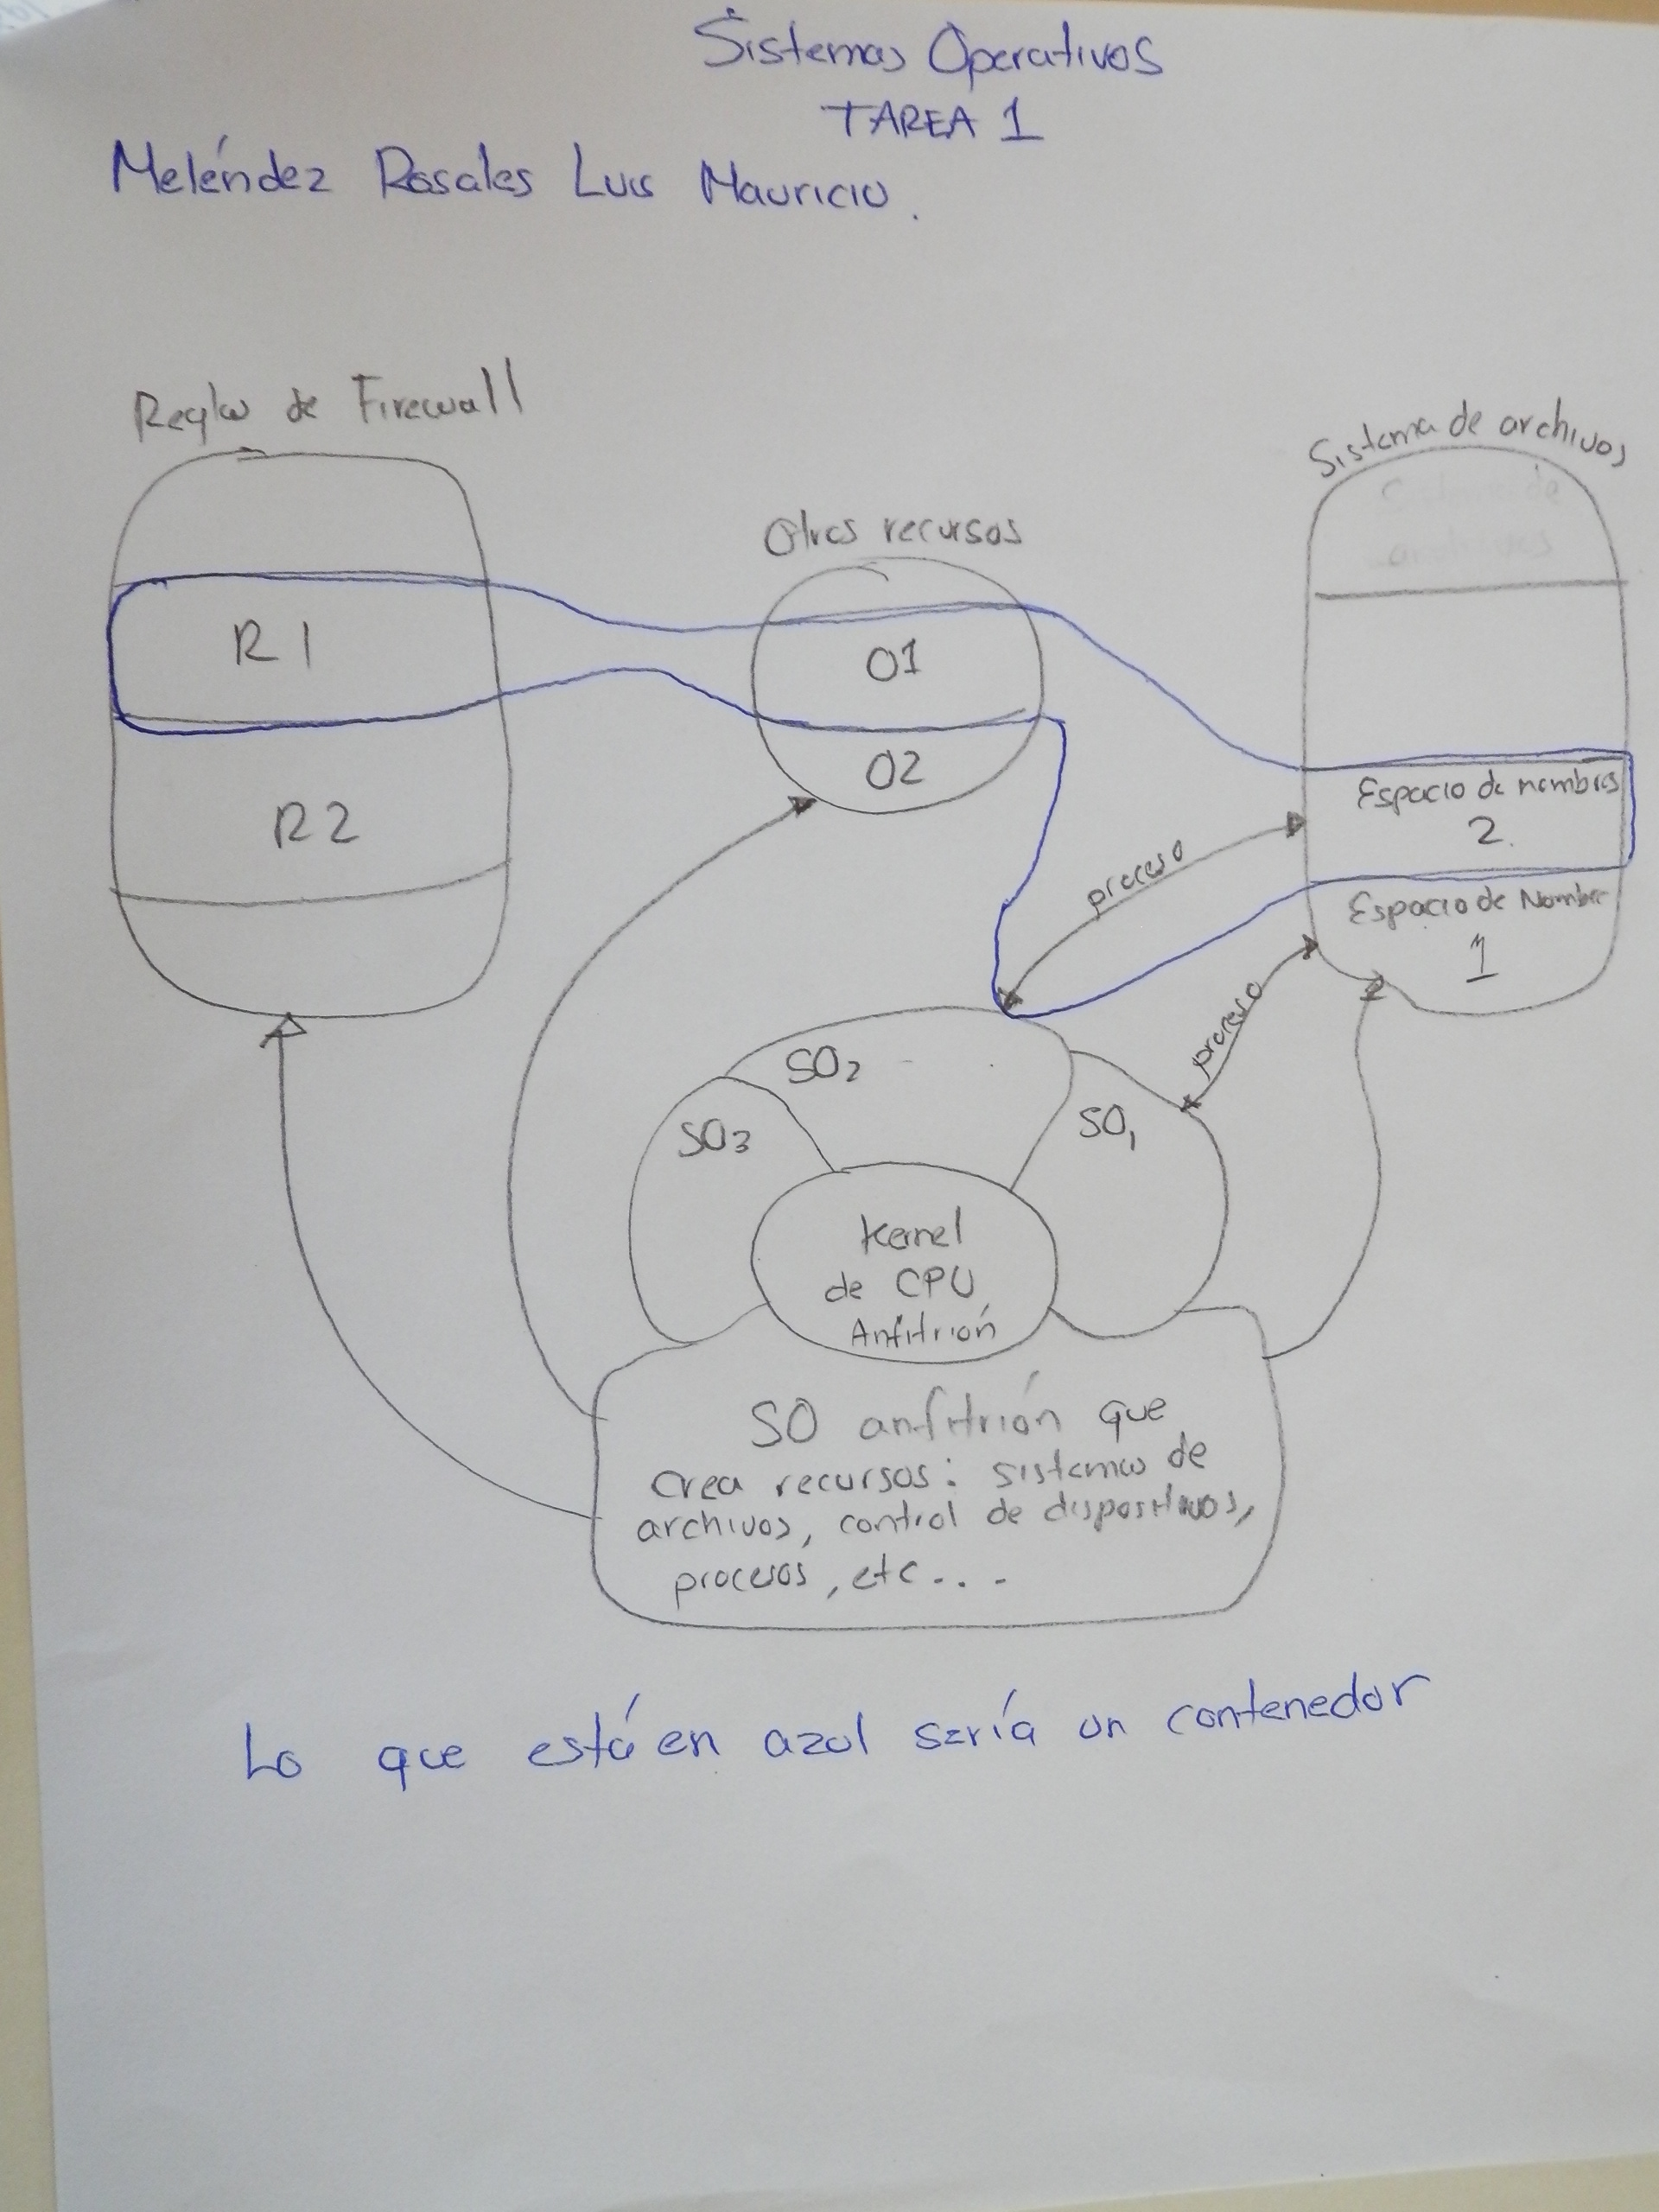 Sistemas Operativos
TAREA 1
Meléndez Rosales Luis Mauricio.
Reglas de Firewall
Sistema de archivos
Otros recursos
R1
O1
R2
O2
Espacio de nombres
2.
proceso
Espacio de Nombre
1
proceso
SO2
SO3
SO1
Kernel
de CPU
Anfitrión
SO anfitrión que
crea recursos: sistemas de
archivos, control de dispositivos,
procesos, etc...
Lo que está en azul sería un contenedor